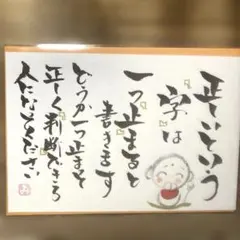 正しいという
「字」は
一つ止まると
書きます
どうか一つ止まって
正しく判断できる
人になってください